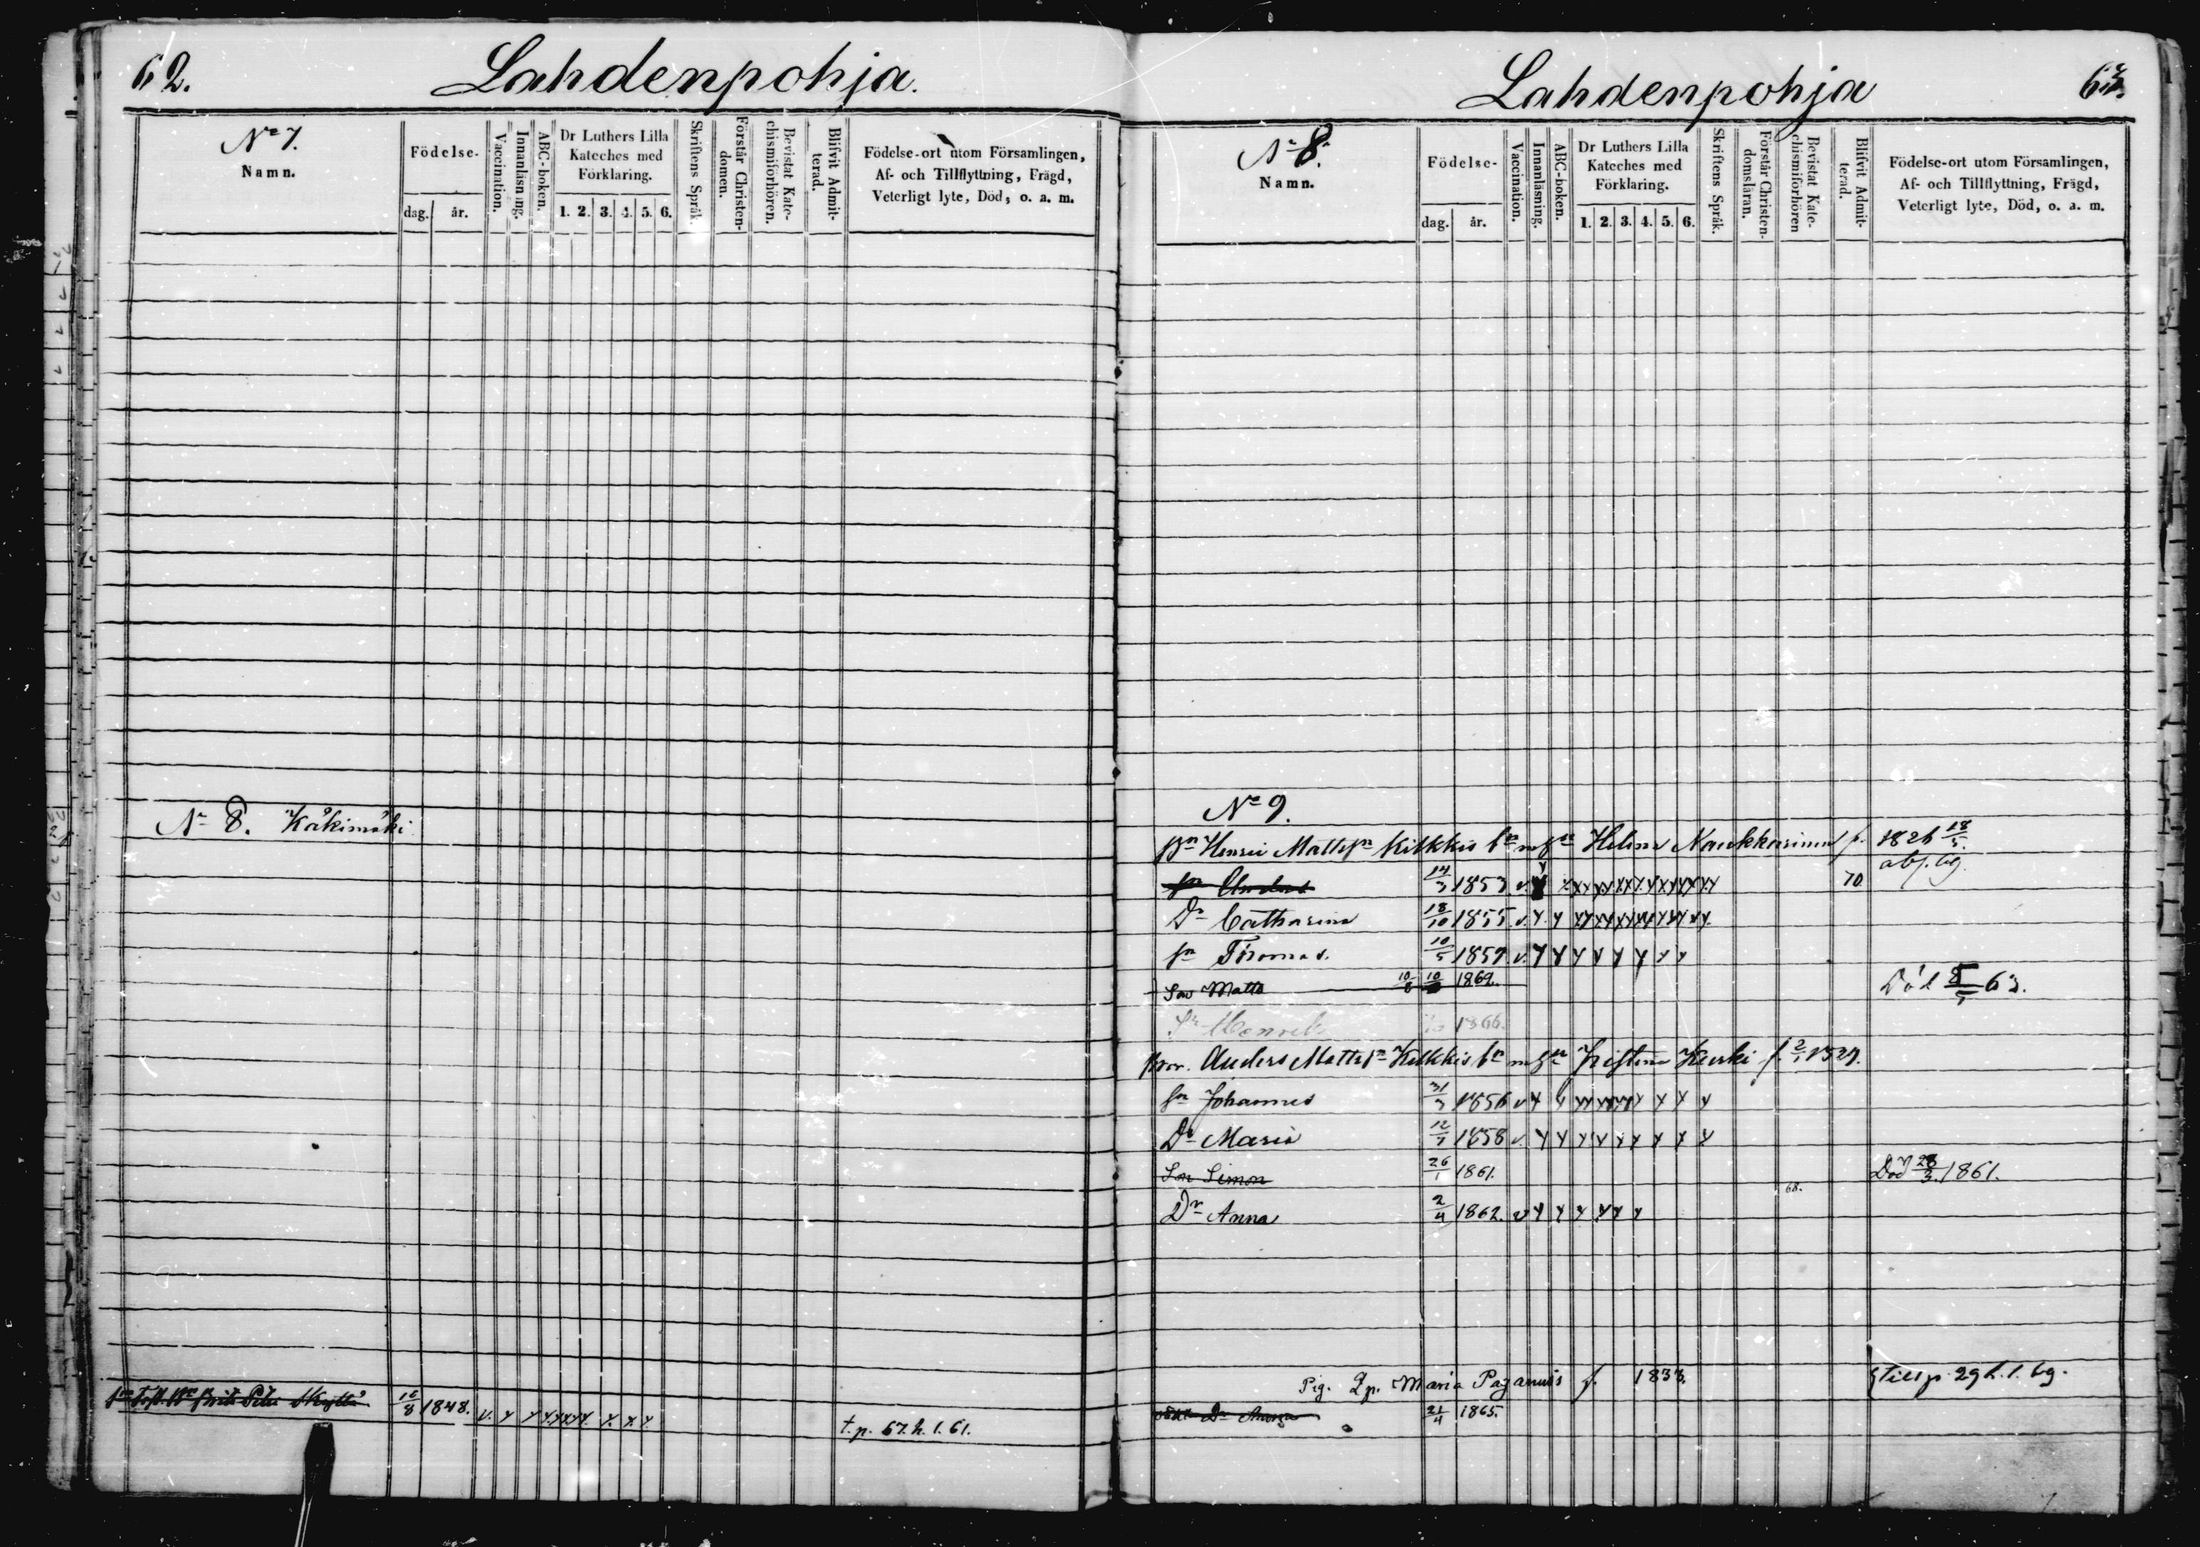 62.
Lahdenpohja.
No 7.
Namn.
Födelse-
dag. år.
Vaccination.
Innanläsning.
ABC-boken.
Dr Luthers Lilla
Kateches med
Förklaring.
1. 2. 3. 4. 5. 6.
Skriftens Språk.
Förstår Christen-
domen.
Bevistat Kate-
chismiförhören.
Blifvit Admit-
terad.
Födelse-ort utom Församlingen,
Af- och Tillflyttning, Frägd,
Veterligt lyte, Död, o. a. m.
No 8. Käkimäki
16/8 1848. v. x x xxxxx x x x
t. p. 67. h. 1. 61.
Lahdenpohja
63.
No 8.
Namn.
Födelse-
dag. år.
Vaccination.
Innanläsning.
ABC-boken.
Dr Luthers Lilla
Kateches med
Förklaring.
1. 2. 3. 4. 5. 6.
Skriftens Språk.
Förstår Christen-
domsläran.
Bevistat Kate-
chismiförhören
Blifvit Admit-
terad.
Födelse-ort utom Församlingen,
Af- och Tillflyttning, Frägd,
Veterligt lyte, Död, o. a. m.
No 9.
Bn Henric Mattsn Kilkkis bn m hn Helena Naukkarinen f. 1826 18/5.
sn Anders 14/3 1853 v. 70 abs. 69
Dr Catharina 18/10 1855 v. x x
sn Thomas. 10/5 1859 v. x x x x x x x x
Son Matts 10/8 10 1862. Död 8/1 63.
Sn Henrik 1866.
Bror. Anders Mattsn Kilkkis bn m hn Christina Kurki f. 2/1 1829.
sn Johannes 31/3 1856 v x
Dr Maria 12/1 1858 v. x x x x x x x x x
Son Simon 26/1 1861. Död 28/3. 1861.
68.
Dr Anna 2/4 1862. v x x x x x x
Pig. Maria Paganus f. 1833. till p. 29 h. 1. 69.
21/4 1865.